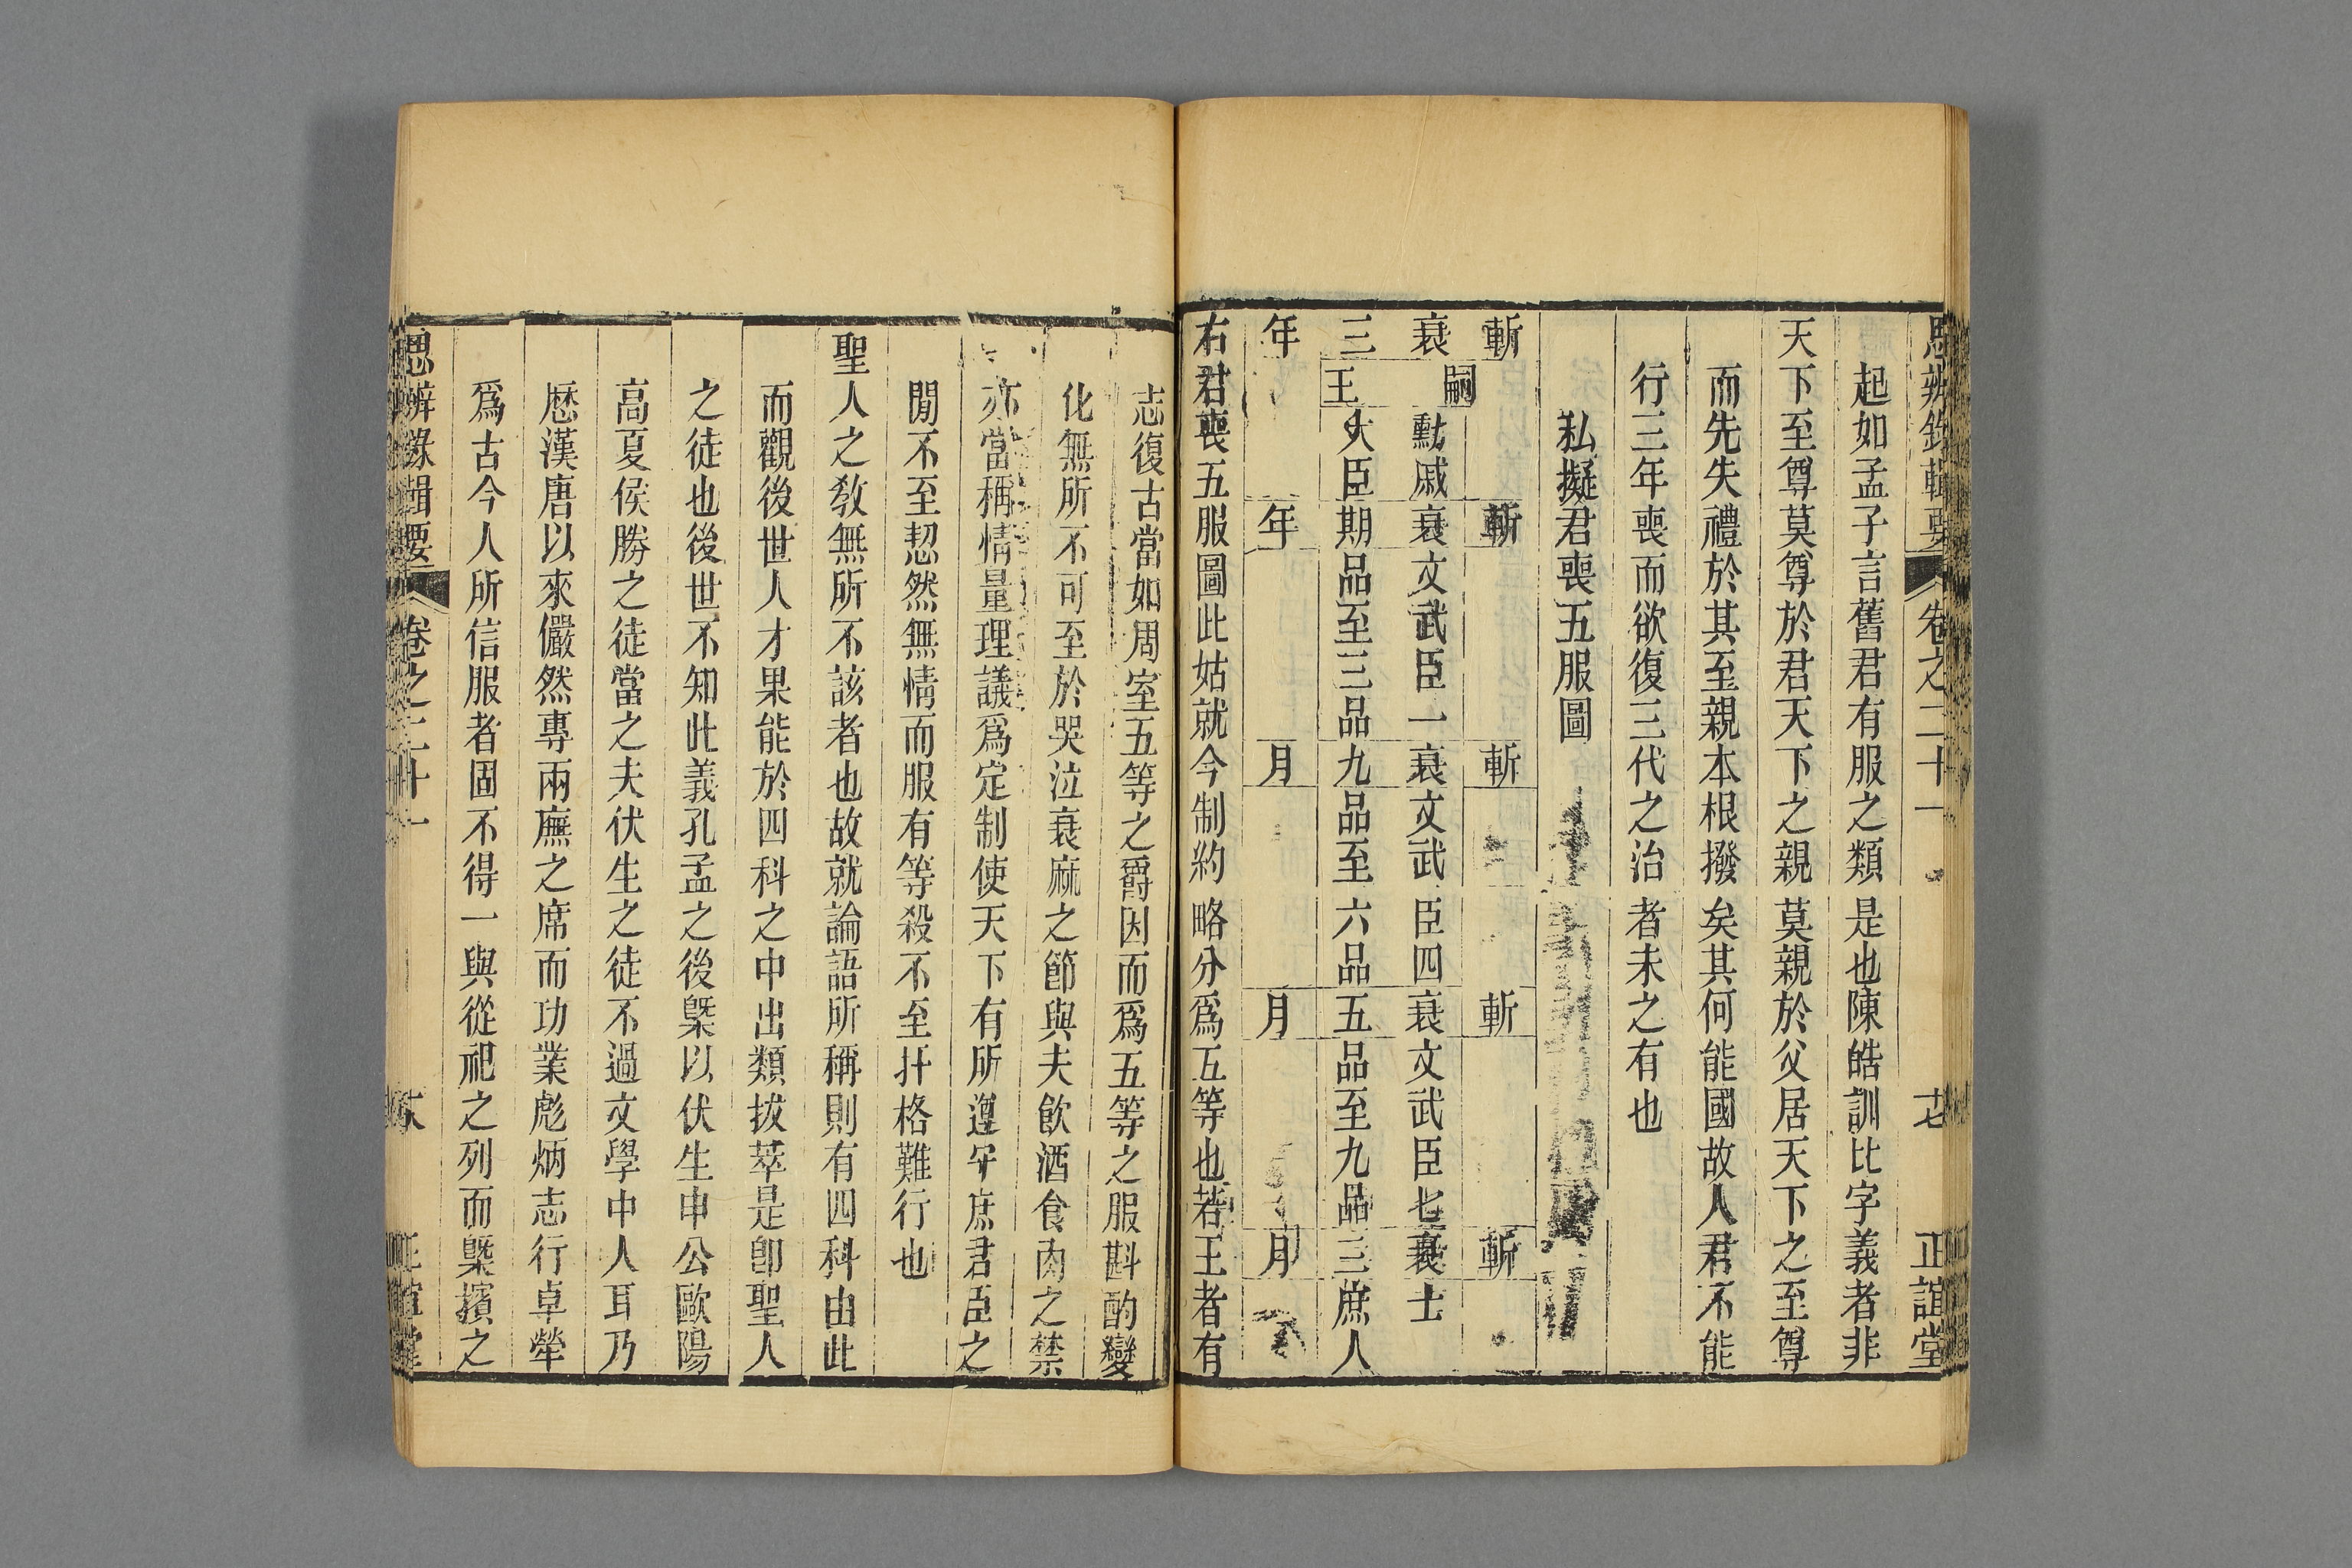 思辨錄輯要 卷之二十一 十七 正誼堂
起如孟子言舊君有服之類是也陳皓訓比字義者非
天下至尊莫尊於君天下之親莫親於父居天下之至尊
而先失禮於其至親本根撥矣其何能國故人君不能
行三年喪而欲復三代之治者未之有也
私擬君喪五服圖
斬 斬 斬 斬 斬
衰 嗣 勳戚衰文武臣一衰文武臣四衰文武臣七衰士
三 王 大臣期品至三品九品至六品五品至九品三庶人
年 年 月 月 月
右君喪五服圖此姑就今制約略分爲五等也若王者有
志復古當如周室五等之爵因而爲五等之服斟酌變
化無所不可至於哭泣衰麻之節與夫飮酒食肉之禁
亦當稱情量理議爲定制使天下有所遵守庶君臣之
閒不至恝然無情而服有等殺不至扞格難行也
聖人之敎無所不該者也故就論語所稱則有四科由此
而觀後世人才果能於四科之中出類拔萃是卽聖人
之徒也後世不知此義孔孟之後槩以伏生申公歐陽
高夏侯勝之徒當之夫伏生之徒不過文學中人耳乃
歷漢唐以來儼然專兩廡之席而功業彪炳志行卓犖
爲古今人所信服者固不得一與從祀之列而槩擯之
思辨錄輯要 卷之二十一 正誼堂